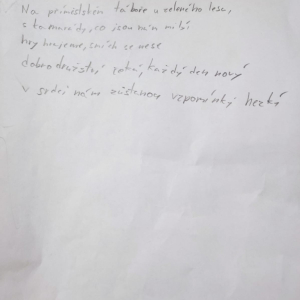 Na příměstském táboře u zeleného lesa,
s kamarády, co jsou nám milí
hry hrajeme, smích se nese
dobrodružství zažívá, každý den nový
v srdci nám zůstanou vzpomínky hezké